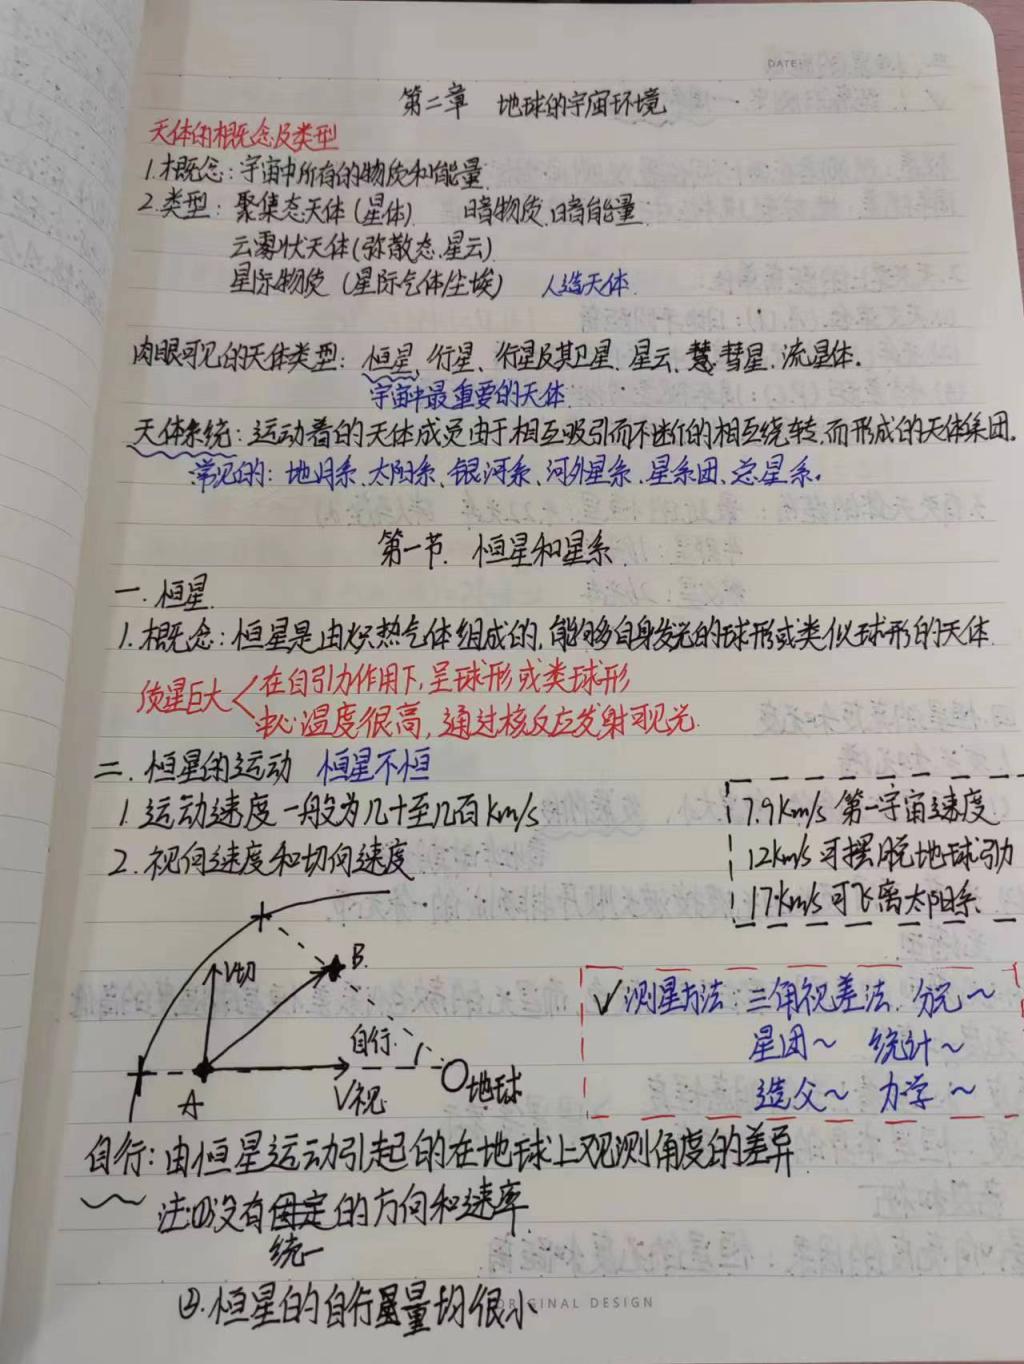 DATE:
第二章 地球的宇宙环境
天体的概念及类型
1.概念：宇宙中所有的物质和能量
2.类型：聚集态天体（星体） 暗物质.暗能量
云雾状天体（弥散态.星云）
星际物质（星际气体/尘埃） 人造天体
肉眼可见的天体类型：恒星、行星、行星及其卫星、星云、彗星、流星体.
宇宙中最重要的天体
天体系统：运动着的天体成员由于相互吸引而不断的相互绕转.而形成的天体集团.
常见的：地月系、太阳系、银河系、河外星系、星系团、总星系.
第一节. 恒星和星系
一.恒星
1.概念：恒星是由炽热气体组成的，能够自身发光的球形或类似球形的天体.
质量巨大 在自引力作用下，呈球形或类球形
中心温度很高，通过核反应发射可见光.
二.恒星的运动 恒星不恒
1.运动速度一般为几十至几百km/s
7.9km/s 第一宇宙速度
12km/s 可摆脱地球引力
17km/s 可飞离太阳系.
2.视向速度和切向速度
B.
V切
自行.
A
V视
地球
✓测星方法：三角视差法. 分光～
星团～ 统计～
造父～ 力学～
自行：由恒星运动引起的在地球上观测角度的差异
注：①没有固定的方向和速率
统一
②.恒星的自行量均很小
ORIGINAL DESIGN